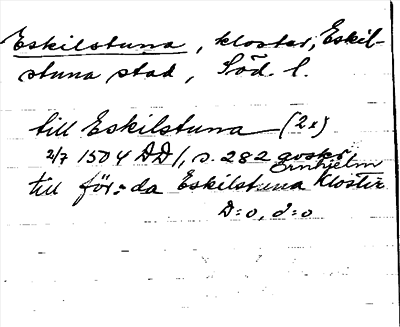 Eskilstuna, kloster, Eskil-
stuna stad, Söd. l.
till Eskilstuna (2x)
2/7 1504 DD1, s. 282 avskr.
Örnhielm
till för:da Eskilstuna Kloster
D:o, d:o